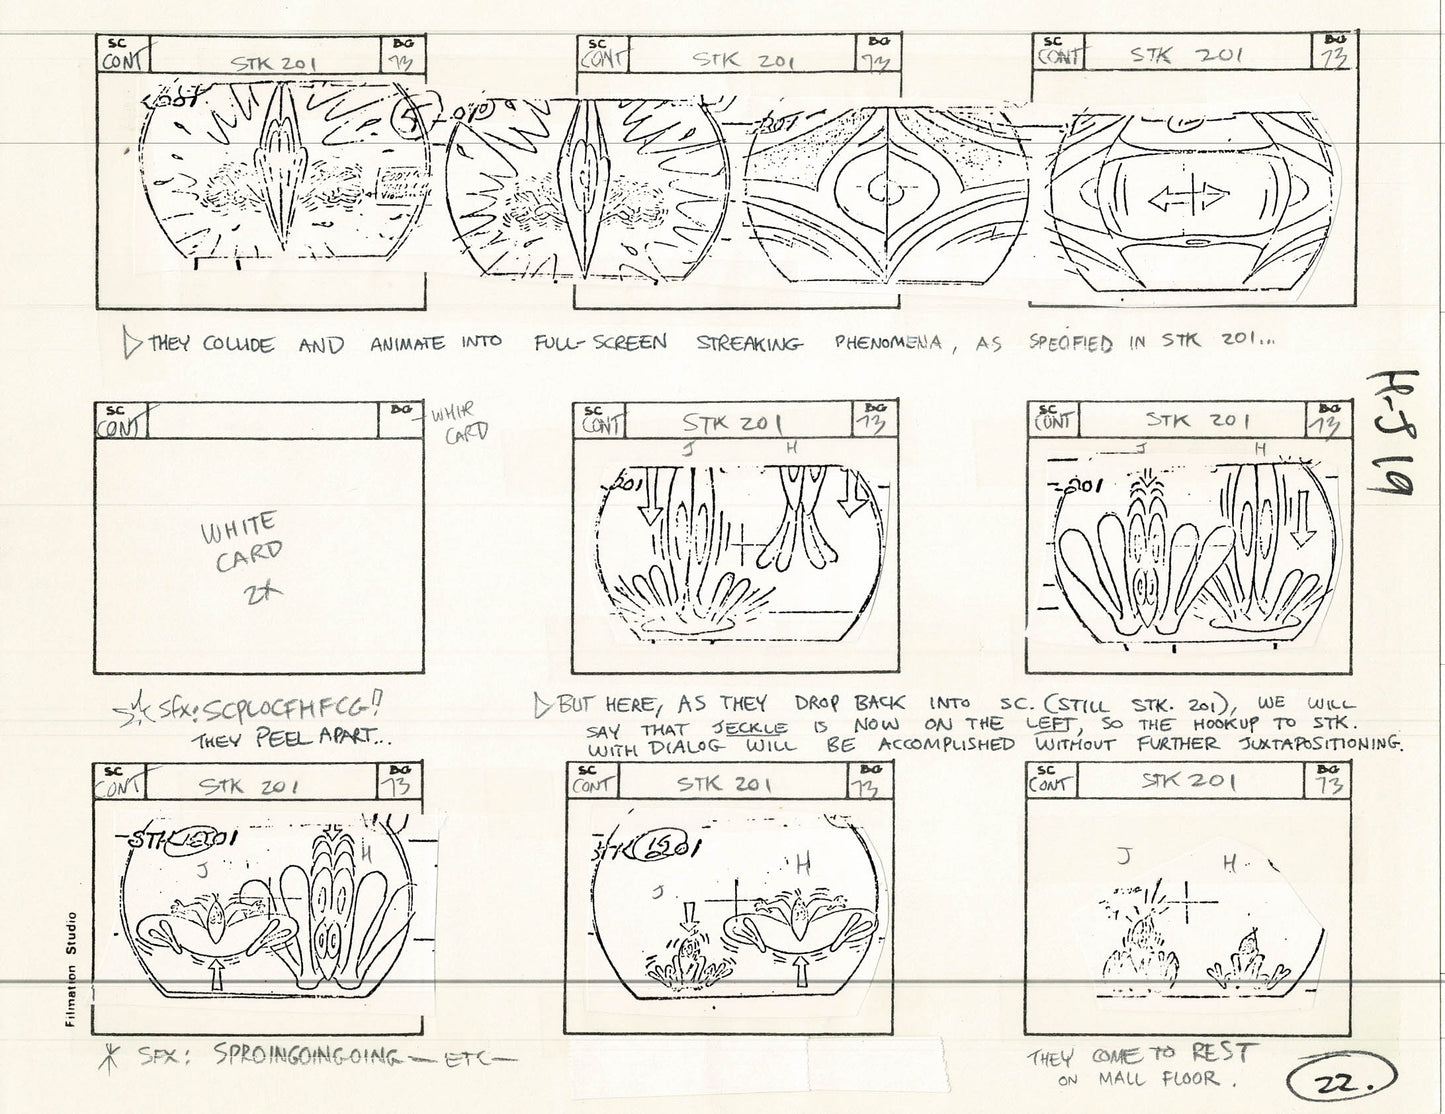 SC
CONT
STK 201
BG
73
SC
CONT
STK 201
BG
73
SC
CONT
STK 201
BG
73
201
5
201
▷ THEY COLLIDE AND ANIMATE INTO FULL-SCREEN STREAKING PHENOMENA, AS SPECIFIED IN STK 201...
H-519
SC
CONT
BG
CARD
WHITE
CARD
2X
SC
CONT
STK 201
BG
73
J H
201
SC
CONT
STK 201
BG
73
J H
201
SFX: SCPLOCFHFCG!
THEY PEEL APART...
▷ BUT HERE, AS THEY DROP BACK INTO SC. (STILL STK. 201), WE WILL
SAY THAT JECKLE IS NOW ON THE LEFT, SO THE HOOKUP TO STK.
WITH DIALOG WILL BE ACCOMPLISHED WITHOUT FURTHER JUXTAPOSITIONING.
SC
CONT
STK 201
BG
73
J H
SC
CONT
STK 201
BG
73
J H
SC
CONT
STK 201
BG
73
J H
Filmation Studio
* SFX: SPROINGOINGOING — ETC —
THEY COME TO REST
ON MALL FLOOR.
22.